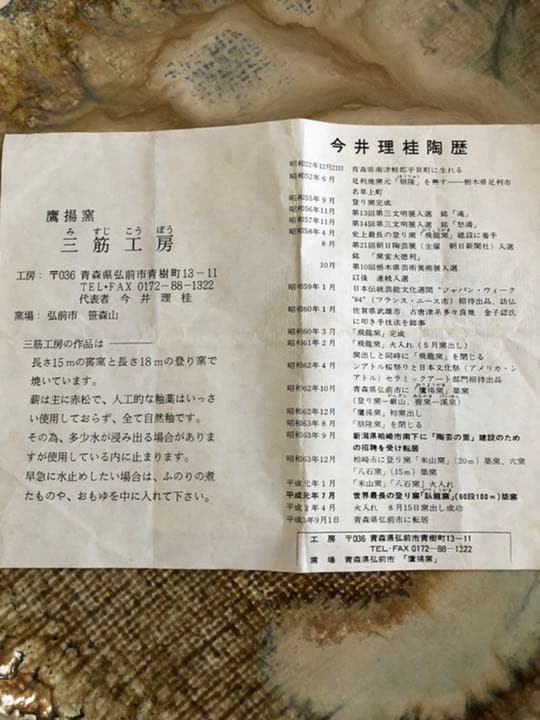 鷹揚窯
み すじ こう ぼう
三筋工房
工房: 〒036 青森県弘前市青樹町13-11
TEL・FAX 0172-88-1322
代表者 今井理桂
窯場: 弘前市 笹森山
三筋工房の作品は
長さ15mの窖窯と長さ18mの登り窯で
焼いています。
薪は主に赤松で、人工的な釉薬はいっさ
い使用しておらず、全て自然釉です。
その為、多少水が浸み出る場合がありま
すが使用している内に止まります。
早急に水止めしたい場合は、ふのりの煮
たものや、おもゆを中に入れて下さい。
今井理桂陶歴
昭和22年12月21日 青森県南津軽郡平賀町に生れる
昭和52年6月 足利焼窯元「胡隆」を興す――栃木県足利市
名草上町
昭和55年9月 登り窯完成
昭和56年11月 第13回第三文明展入選 銘「滝」
昭和57年11月 第14回第三文明展入選 銘「怒濤」
昭和58年4月 史上最長の登り窯「飛龍窯」建設に着手
8月 第21回朝日陶芸展(主催 朝日新聞社)入選
銘「窯変大徳利」
10月 第10回栃木県芸術美術展入選
以後 連続入選
昭和59年1月 日本伝統芸能文化週間“ジャパン・ウィーク
“84”(フランス・ニース市)招待出品、訪仏
昭和60年1月 佐賀県武雄市 古唐津系多々良幾 金子認氏
に叩き手技法を師事
昭和60年3月 「飛龍窯」完成
昭和61年2月 「飛龍窯」火入れ(5月窯出し)
窯出しと同時に「飛龍窯」を閉じる
昭和62年4月 シアトル桜祭りと日本文化祭(アメリカ・シ
アトル)セラミックアート部門招待出品
昭和62年10月 青森県弘前市に「鷹揚窯」築窯
昭和62年12月 「鷹揚窯」初窯出し
昭和63年8月 「胡隆窯」を閉じる
昭和63年9月 新潟県柏崎市南下に「陶芸の里」建設のため
の招聘を受け転居
昭和63年12月 柏崎占に登り窯「米山窯」(20m)築窯、穴窯
「八石窯」(15m)築窯
平成元年1月 「米山窯」「八石窯」火入れ
平成元年7月 世界最長の登り窯「臥龍窯」(60段100m)築窯
平成2年4月 火入れ 8月15日窯出し成功
平成3年9月1日 青森県弘前市に転居
工房 〒036 青森県弘前市青樹町13-11
TEL・FAX 0172-88-1322
窯場 青森県弘前市「鷹揚窯」